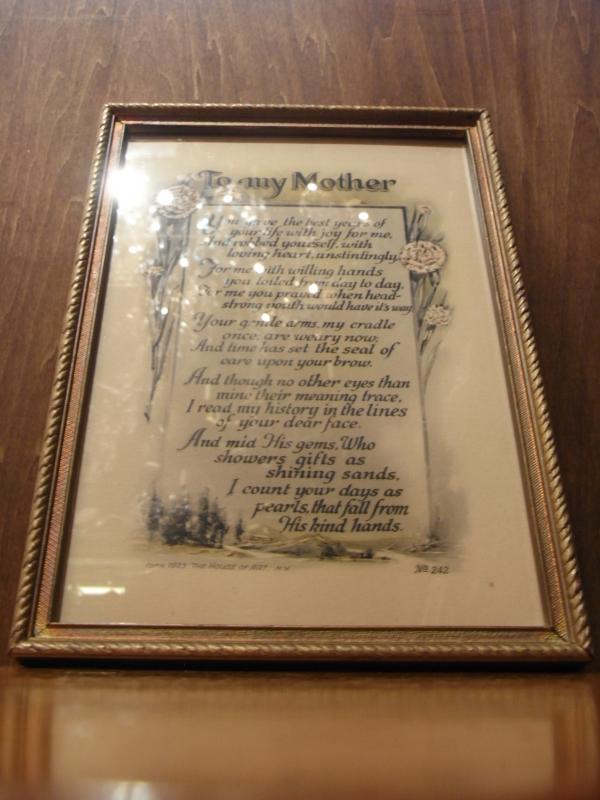 To my Mother
You gave the best years of
your life with joy for me,
And robbed yourself, with
loving heart, unstintingly.
For me with willing hands
you toiled from day to day,
For me you prayed when head-
strong youth would have it's way.
Your gentle arms, my cradle
once, are weary now;
And time has set the seal of
care upon your brow.
And though no other eyes than
mine their meaning trace,
I read my history in the lines
of your dear face.
And mid His gems, Who
showers gifts as
shining sands,
I count your days as
pearls, that fall from
His kind hands.
COPR. 1923 THE HOUSE OF ART N.Y.
No 242